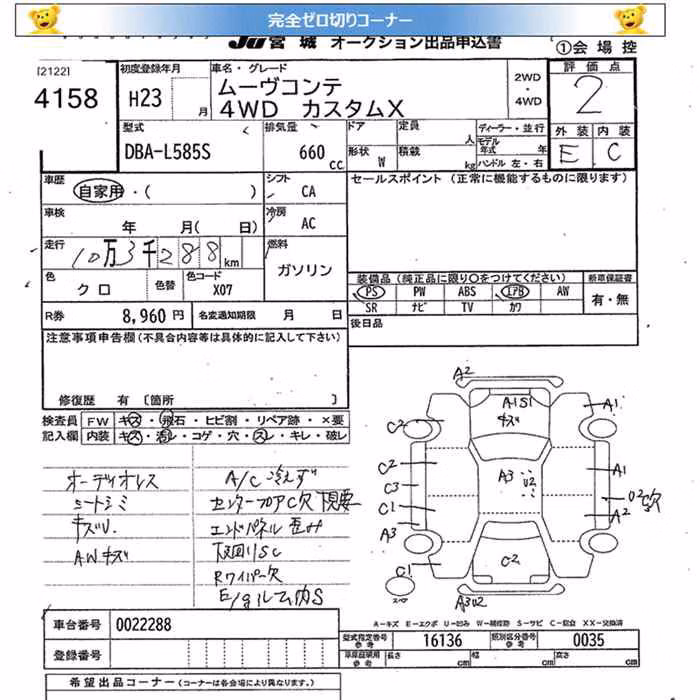 完全ゼロ切りコーナー
JU宮城 オークション出品申込書
①会場控
[2122]
4158
初度登録年月
H23 月
車名・グレード
ムーヴコンテ
4WD カスタムX
2WD
・
4WD
評価点
2
外装 内装
E C
型式
DBA-L585S
排気量
660 CC
ドア 定員 人
形状 W 積載 kg
ディーラー・並行
モデル年式 年
ハンドル 左・右
車歴
自家用・( )
シフト
CA
セールスポイント (正常に機能するものに限ります)
車検
年 月( 日)
冷房
AC
走行
10万3千288 km
燃料
ガソリン
色
クロ
色替
色コード
X07
装備品 (純正品に限り〇をつけてください)
新車保証書
PS PW ABS エアB AW
有・無
SR ナビ TV カワ
R券 8,960 円
名変通知期限 月 日
後日品
注意事項申告欄 (不具合内容等は具体的に記入して下さい)
修復歴 有 〔箇所 〕
検査員 FW キズ・飛石・ヒビ割・リペア跡・×要
記入欄 内装 キズ・汚レ・コゲ・穴・スレ・キレ・破レ
オーディオレス
シートシミ
キズU.
AWキズ
A/C冷えず
センターフロアC穴 下見要
エンドパネル歪み
下回りSC
Rワイパー欠
E/gルーム内S
A2
A1S1
キズ
A1
C2
C2
C3
C1
A3
C1
A3
U2
A1
U2
A2
C2
A3U2
スペア
A-キズ E-エクボ U-凹み W-補修跡 S-サビ C-腐食 XX-交換済
車台番号 0022288
登録番号
型式指定番号 参考 16136
類別区分番号 参考 0035
長さ cm 幅 cm 高さ cm
希望出品コーナー (コーナーは各会場により異なります。)